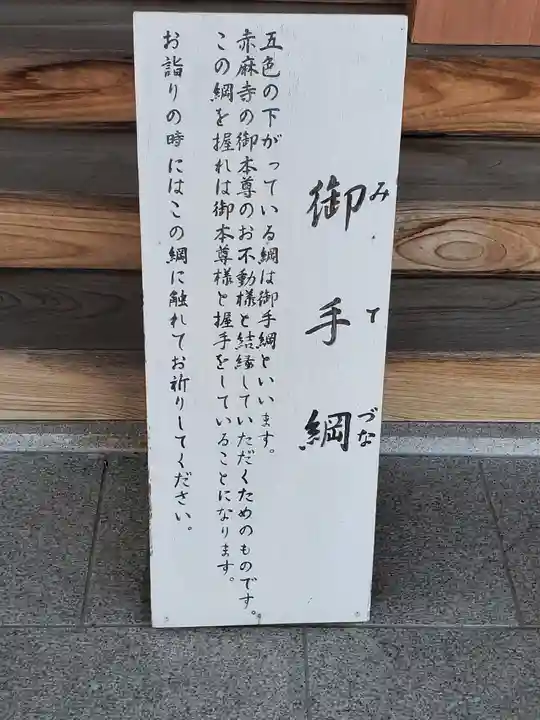 御手綱
みてづな
五色の下がっている綱は御手綱といいます。
赤麻寺の御本尊のお不動様と結縁していただくためのものです。
この綱を握れは御本尊様と握手をしていることになります。
お詣りの時にはこの綱に触れてお祈りしてください。